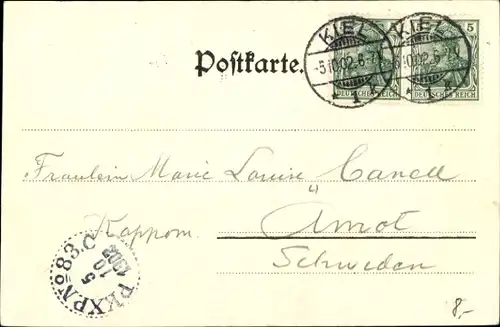 Postkarte.
KIEL
-5.10.02.6-7
* 1 *
KIEL
5.10.02.6-7
* 1 *
DEUTSCHES REICH
5
DEUTSCHES REICH
Fräulein Marie Louise
Åmot
Schweden
PKXP.No 83.C
5
10
1902
8,-